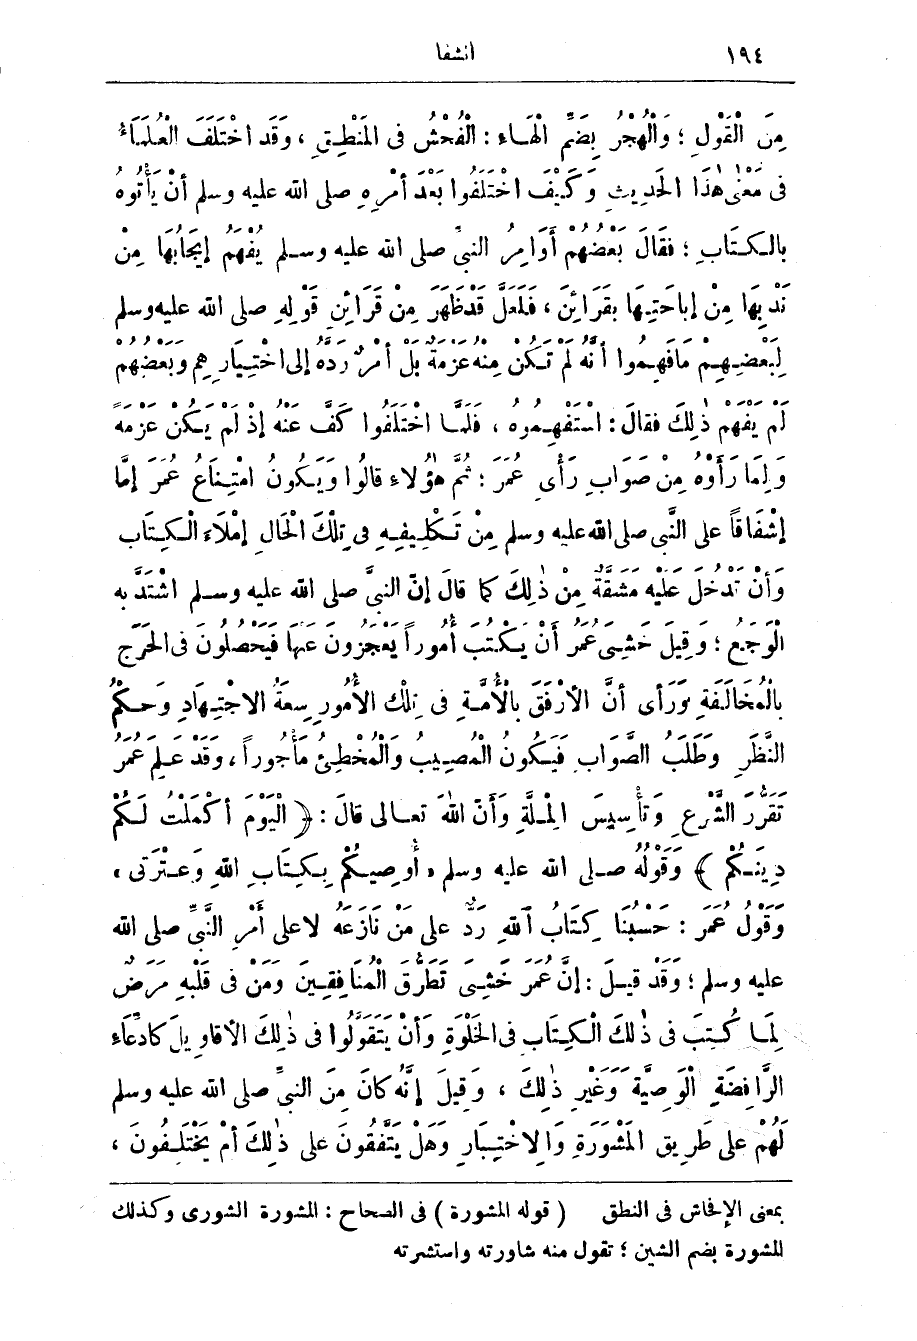 ١٩٤
الشفا
مِنَ الْقَوْلِ ؛ وَالْهُجْرُ بِضَمِّ الْهَاءِ : الْفُحْشُ فى المَنْطِقِ ، وَقَدِ اخْتَلَفَ الْعُلَمَاءُ
فى مَعْنَى هٰذَا الحَدِيثِ وَكَيْفَ اخْتَلَفُوا بَعْدَ أَمْرِهِ صلى الله عليه وسلم أَنْ يَأْتُوهُ
بِالكِتَابِ ؛ فقَالَ بَعْضُهُمْ أَوَامِرُ النبىِّ صلى الله عليه وسلم يُفْهَمُ إيجَابُهَا مِنْ
نَدْبِهَا مِنْ إباحَتِهَا بِقَرَائِنَ ، فَلَعَلَّ قَدْ ظَهَرَ مِنْ قَرَائِنِ قَوْلِهِ صلى الله عليه وسلم
لِبَعْضِهِمْ مَا فَهِمُوا أَنَّهُ لَمْ تَكُنْ مِنْهُ عَزْمَةٌ بَلْ أَمْرٌ رَدَّهُ إلى اخْتِيَارِهِمْ وَبَعْضُهُمْ
لَمْ يَفْهَمْ ذٰلِكَ فقَالَ : اسْتَفْهِمُوهُ ، فَلَمَّا اخْتَلَفُوا كَفَّ عَنْهُ إذْ لَمْ يَكُنْ عَزْمَةً
وَلِمَا رَأَوْهُ مِنْ صَوَابِ رَأْىِ عُمَرَ ؛ ثُمَّ هٰؤُلَاءِ قالُوا وَيَكُونُ امْتِنَاعُ عُمَرَ إمَّا
إشْفَاقاً على النَّبِى صلى الله عليه وسلم مِنْ تَكْلِيفِهِ فى تِلْكَ الْحَالِ إمْلَاءَ الْكِتَابِ
وَأَنْ تَدْخُلَ عَلَيْهِ مَشَقَّةٌ مِنْ ذٰلِكَ كما قالَ إنّ النبىَّ صلى الله عليه وسلم اشْتَدَّ بِهِ
الْوَجَعُ ؛ وَقِيلَ خَشِىَ عُمَرُ أَنْ يَكْتُبَ أُمُوراً يَعْجِزُونَ عَنْهَا فَيَحْصُلُونَ فى الحَرَجِ
بِالْمُخَالَفَةِ وَرَأَى أَنَّ الأَرْفَقَ بِالْأُمَّةِ فى تِلْكَ الأُمُورِ سِعَةُ الاجْتِهَادِ وَحُكْمُ
النَّظَرِ وَطَلَبُ الصَّوَابِ فَيَكُونُ الْمُصِيبُ وَالْمُخْطِئُ مَأْجُوراً ، وَقَدْ عَلِمَ عُمَرُ
تَقَرُّرَ الشَّرْعِ وَتَأْسِيسَ المِلَّةِ وَأَنَّ اللهَ تعالى قالَ : ﴿ الْيَوْمَ أَكْمَلْتُ لَكُمْ
دِينَكُمْ ﴾ وَقَوْلُهُ صلى الله عليه وسلم « أُوصِيكُمْ بِكِتَابِ اللهِ وَعِتْرَتى »
وَقَوْلُ عُمَرَ : حَسْبُنَا كِتَابُ اللهِ رَدٌّ على مَنْ نَازَعَهُ لا على أَمْرِ النَّبِىِّ صلى الله
عليه وسلم ؛ وَقَدْ قِيلَ : إنَّ عُمَرَ خَشِىَ تَطَرُّقَ الْمُنَافِقِينَ وَمَنْ فى قَلْبِهِ مَرَضٌ
لِمَا كُتِبَ فى ذٰلكَ الْكِتَابِ فى الخَلْوَةِ وَأَنْ يَتَقَوَّلُوا فى ذٰلِكَ الأقاوِيلَ كادِّعَاءِ
الرَّافِضَةِ الْوَصِيَّةَ وَغَيْرِ ذٰلِكَ ، وَقِيلَ إنَّهُ كانَ مِنَ النبىِّ صلى الله عليه وسلم
لَهُمْ على طَرِيقِ المَشُورَةِ وَالاخْتِبَارِ وَهَلْ يَتَّفِقُونَ على ذٰلِكَ أَمْ يَخْتَلِفُونَ ،
بمعنى الإفحاش فى النطق ( قوله المشورة ) فى الصحاح : المشورة الشورى وكذلك
المشورة بضم الشين ؛ تقول منه شاورته واستشرته